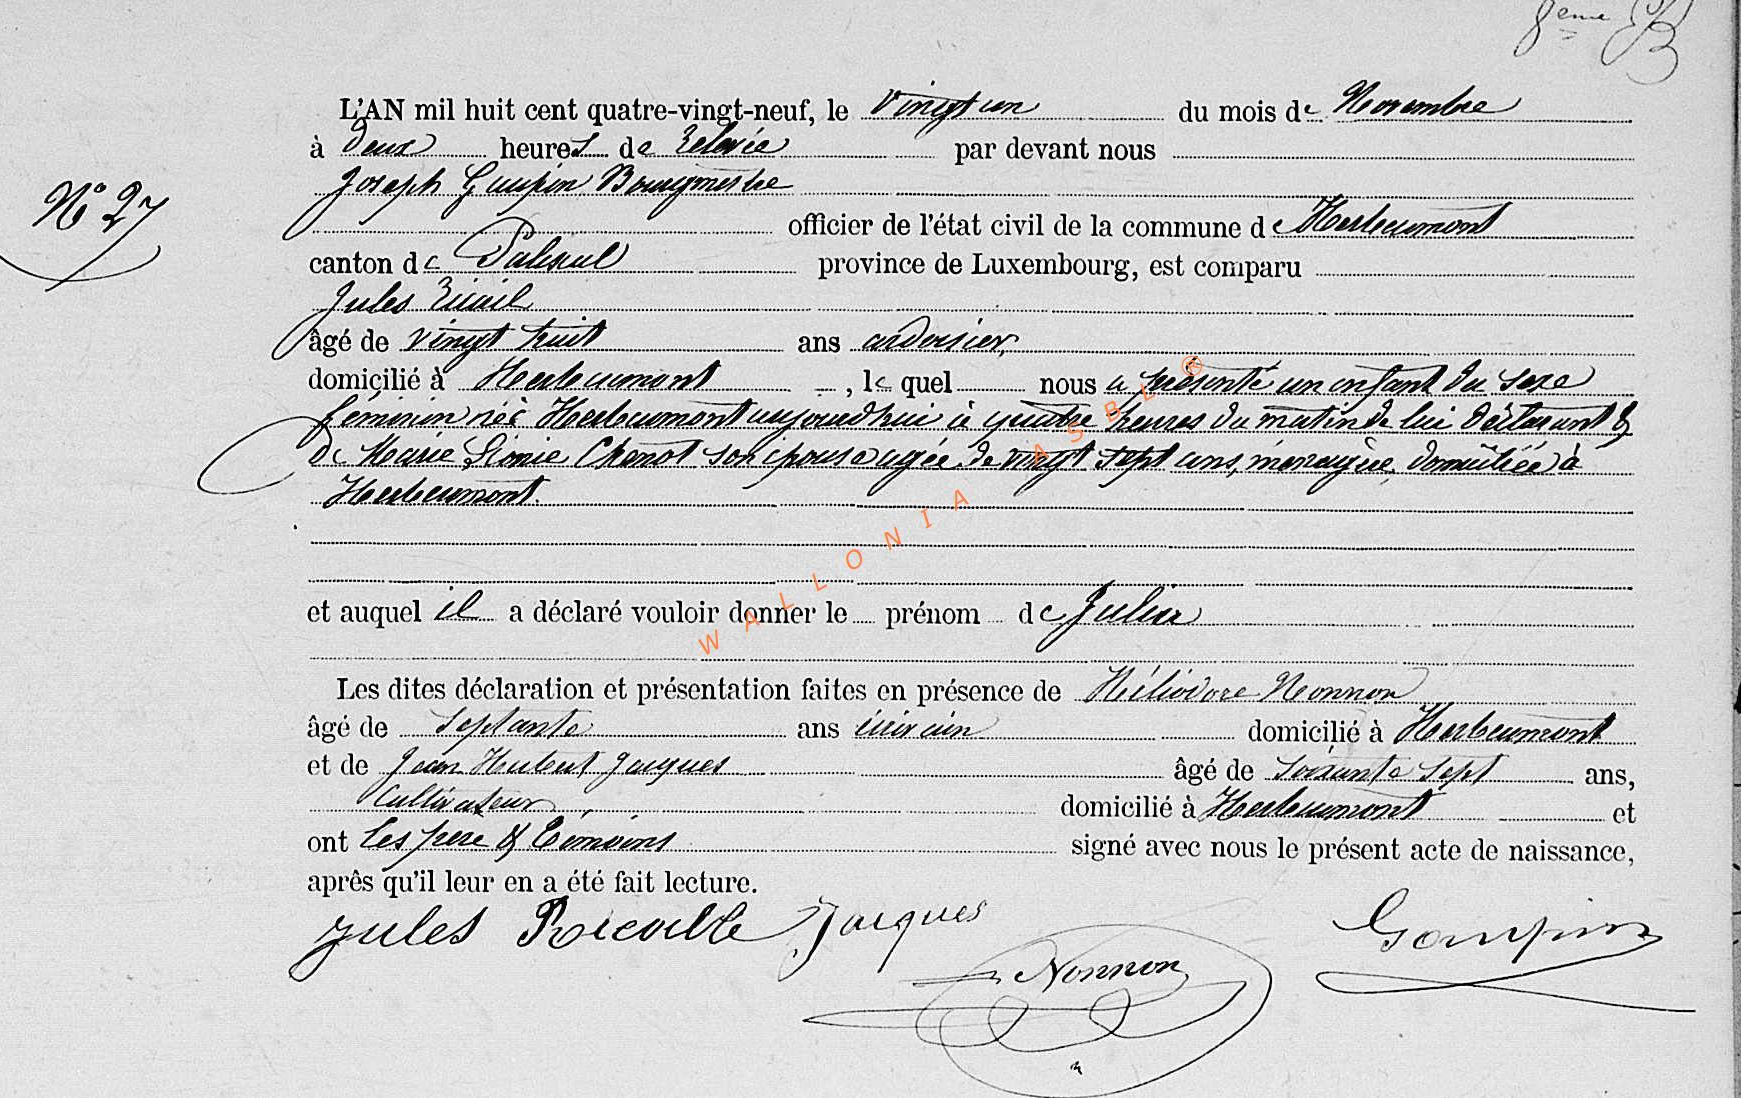 8ème
L'AN mil huit cent quatre-vingt-neuf, le vingt un du mois de Novembre
à deux heures de relevée par devant nous
Joseph Goupin Bourgmestre
N° 27
officier de l'état civil de la commune de Herbeumont
canton de Paliseul province de Luxembourg, est comparu
Jules
âgé de vingt huit ans ardoisier,
domicilié à Herbeumont, le quel nous a présenté un enfant du sexe
féminin né à Herbeumont aujourd'hui à quatre heures du matin de lui déclarant &
de Marie Léonie Chenot son épouse agée de vingt sept ans, ménagère, domiciliée à
Herbeumont.
et auquel il a déclaré vouloir donner le prénom de Julia
Les dites déclaration et présentation faites en présence de Héliodore Nonnon
âgé de septante ans écrivain domicilié à Herbeumont
et de Jean Hubert Jacques âgé de soixante sept ans,
Cultivateur domicilié à Herbeumont et
ont les père & témoins signé avec nous le présent acte de naissance,
après qu'il leur en a été fait lecture.
Jules Jacques
Nonnon
Goupin
WALLONIA ASBL ®